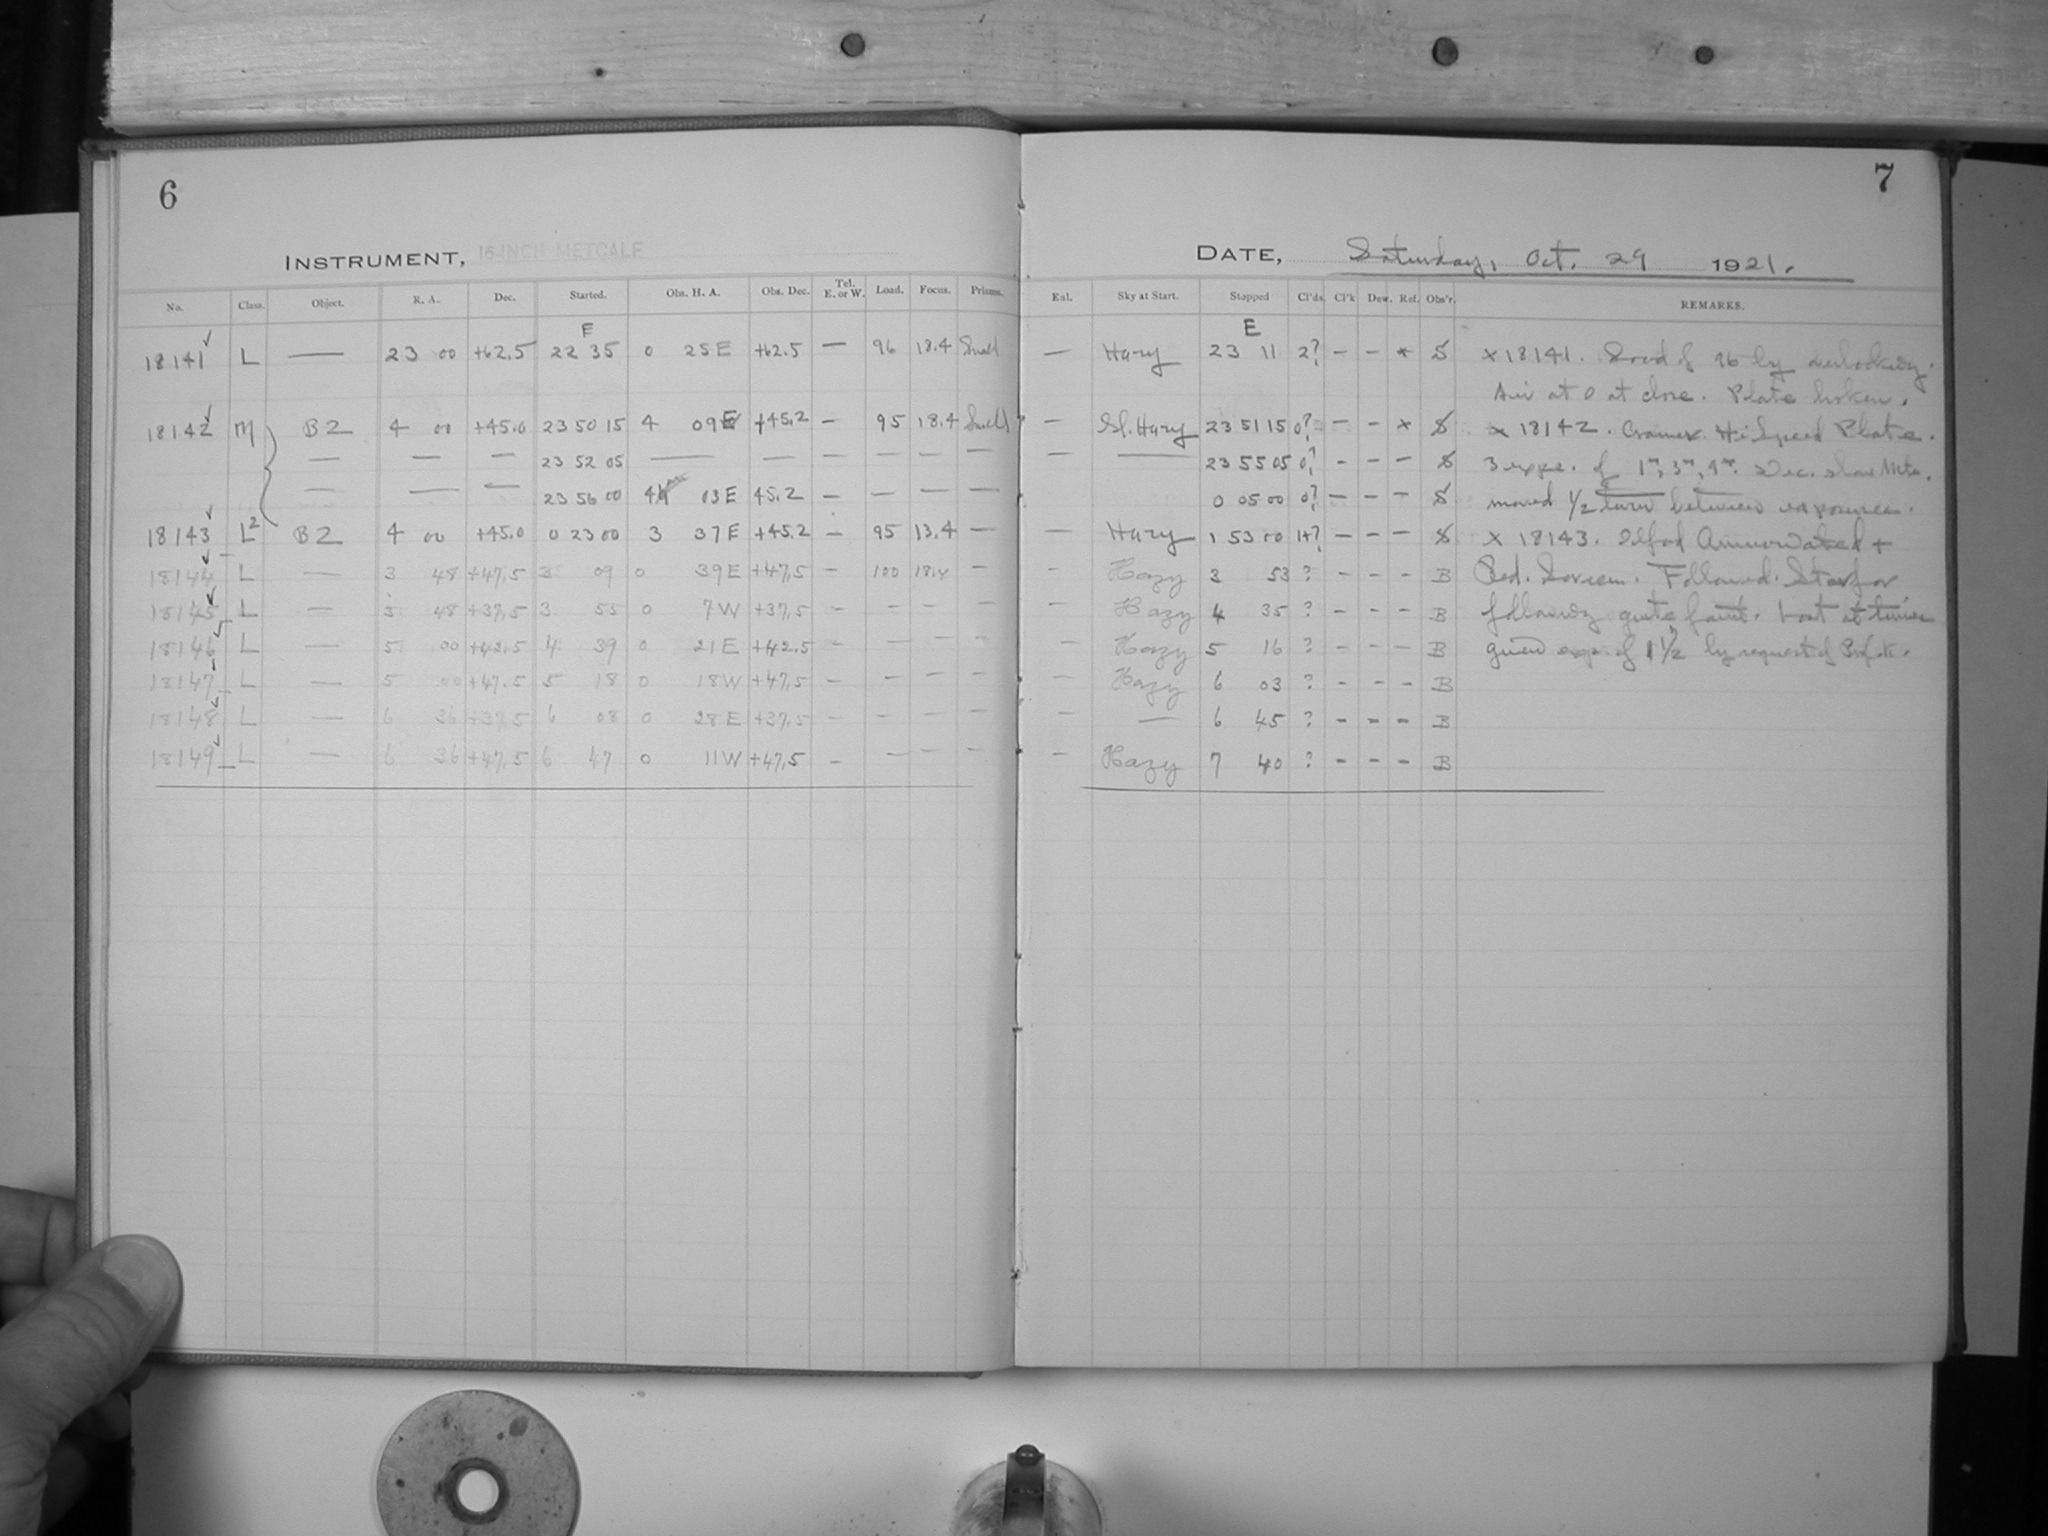 6
INSTRUMENT, 16-INCH METCALF
No. Class. Object. R. A. Dec. Started. Obs. H. A. Obs. Dec. Tel. E. or W. Load. Focus. Prisms.
18141 L — 23 00 +62.5 22 35 0 25E +62.5 — 96 18.4 Small
18142 M B2 4 00 +45.0 23 50 15 4 09E +45.2 — 95 18.4 Small
— — — 23 52 05 — — — — — —
— — — 23 56 00 4 03E 45.2 — — — —
18143 L2 B2 4 00 +45.0 0 23 00 3 37E +45.2 — 95 13.4 —
18144 L — 3 48 +47.5 3 09 0 39E +47.5 — 100 18.4 —
18145 L — 3 48 +37.5 3 55 0 7W +37.5 — — — —
18146 L — 5 00 +42.5 4 39 0 21E +42.5 — — — —
18147 L — 5 00 +47.5 5 18 0 18W +47.5 — — — —
18148 L — 6 36 +37.5 6 08 0 28E +37.5 — — — —
18149 L — 6 36 +47.5 6 47 0 11W +47.5 — — — —
7
DATE, Saturday, Oct. 29 1921.
Enl. Sky at Start. Stopped Cl'ds. Cl'k Dew. Ref. Obs'r. REMARKS.
E
— Hazy 23 11 2? — — x S x 18141. of 96 by
at 0 at close. Plate broken.
— Sl. Hazy 23 51 15 0? — — x S x 18142. Cramer Hi Speed Plate.
— — 23 55 05 0? — — — S 3 exps. of 1m, 3m, 9m. Dec. slow Mtn.
0 05 00 0? — — — S moved 1/2 turn between exposures.
— Hazy 1 53 00 1+? — — — S x 18143. Ilford +
— Hazy 3 53 ? — — — B Red. Screen. Followed. Star for
— Hazy 4 35 ? — — — B following quite faint. Lost at times
— Hazy 5 16 ? — — — B exp. of 1 1/2 by request of
— Hazy 6 03 ? — — — B
— — 6 45 ? — — — B
— Hazy 7 40 ? — — — B